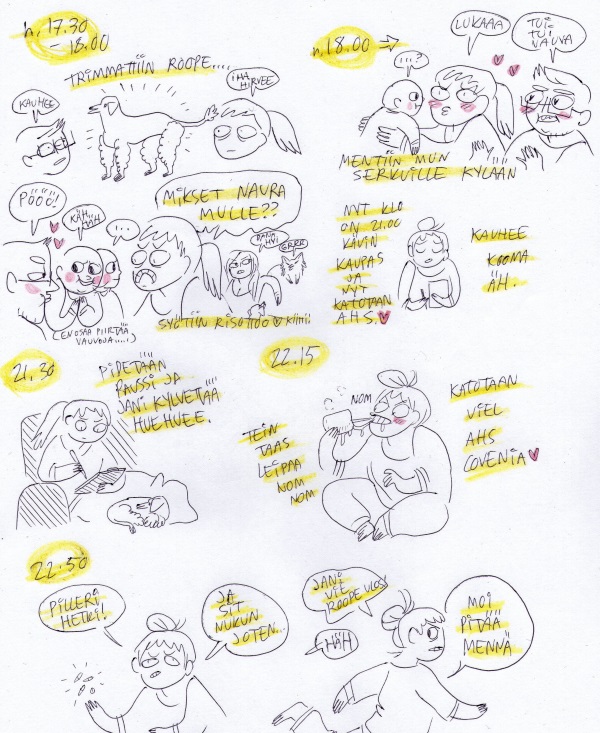 n. 17.30
- 18.00
TRIMMATTIIN ROOPE....
KAUHEE
IHA
HIRVEE
n. 18.00 →
LUKAAA
TUI
TUI
VAUVA
...?
MENTIIN MUN
SERKUILLE KYLÄÄN
PÖÖÖ!
KÄH
HÄH
...
MIKSET NAURA
MULLE??
GRRR
(EN OSAA PIIRTÄÄ
VAUVOJA.....!)
SYÖTIIN RISOTTOO
NYT KLO
ON 21.00
KÄVIN
KAUPAS
JA
NYT
KATOTAAN
AHS.
KAUHEE
KOOMA
ÄH.
21.30
PIDETÄÄN
PAUSSI JA
JANI KYLVETTÄÄ
HUEHUEE.
22.15
NOM
TEIN
TAAS
LEIPÄÄ
NOM
NOM
KATOTAAN
VIEL
AHS
COVENIA
22:50
PILLERI
HETKI!
JA
SIT
NUKUN
JOTEN...
JANI
VIE
ROOPE ULOS!
HÄH
MOI
PITÄÄ
MENNÄ